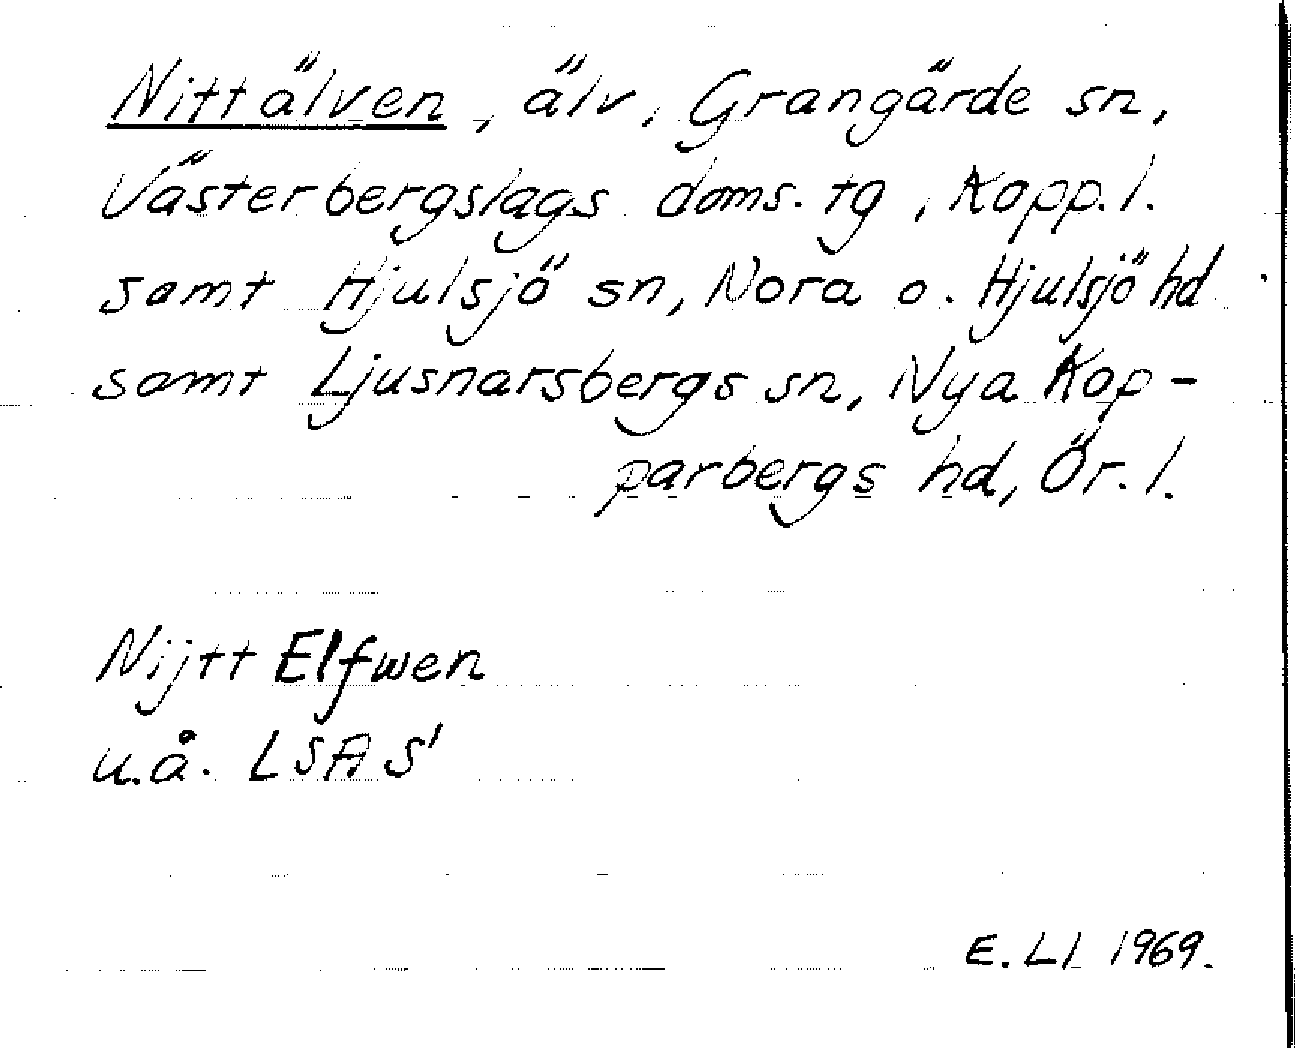 Nittälven, älv, Grangärde sn,
Västerbergslags doms. tg, Kopp. l.
samt Hjulsjö sn, Nora o. Hjulsjö hd
samt Ljusnarsbergs sn, Nya Kop-
parbergs hd, Ör. l.
Nijtt Elfwen
u.å. LSA S1
E. Ll 1969.